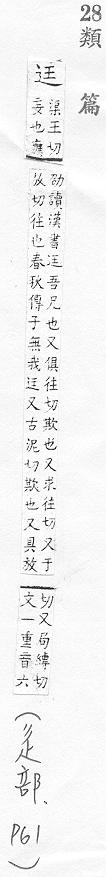 28
類篇
迋
渠王切
妄也應
劭讀漢書迋吾兄也又俱往切欺也又求往切又于
放切往也春秋傳子無我迋又古泥切欺也又具放
切又局縛切
文一重音六
(辵部、P61)